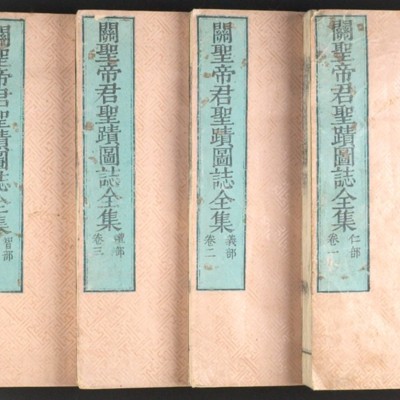 關聖帝君聖蹟圖誌全集
仁部
卷一
關聖帝君聖蹟圖誌全集
義部
卷二
關聖帝君聖蹟圖誌全集
禮部
卷三
關聖帝君聖蹟圖誌全集
智部